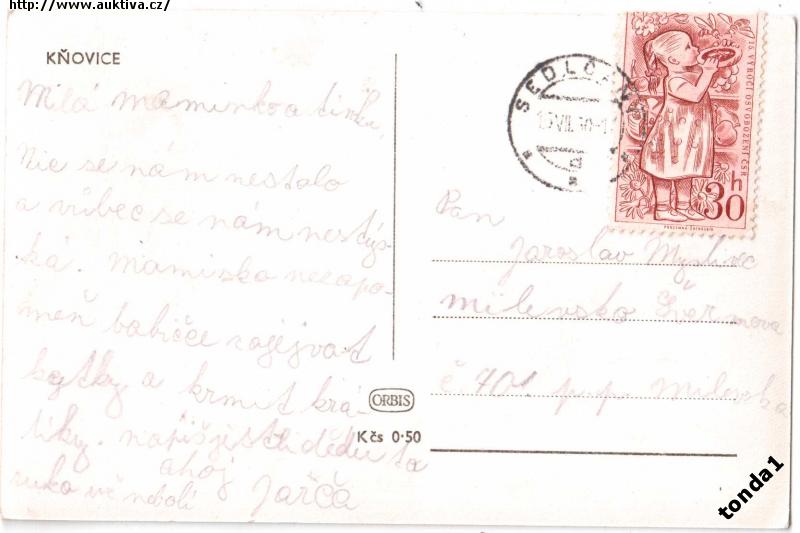 http://www.auktiva.cz/
KŇOVICE
Milá maminko a tinku,
Nic se nám nestalo
a vůbec se nám nestýs-
ká. Maminko nezapo-
meň babičce zalejvat
kytky a krmit krá-
líky. napiš jestli dědu ta
ruka už nebolí
ahoj
Jarča
ORBIS
Kčs 0·50
SEDLČANY
15 VÝROČÍ OSVOBOZENÍ ČSR
30 h
Pan
Jaroslav Myslivec
Milevsko Švermova
č. 701. p.p. Milevsko
tonda1